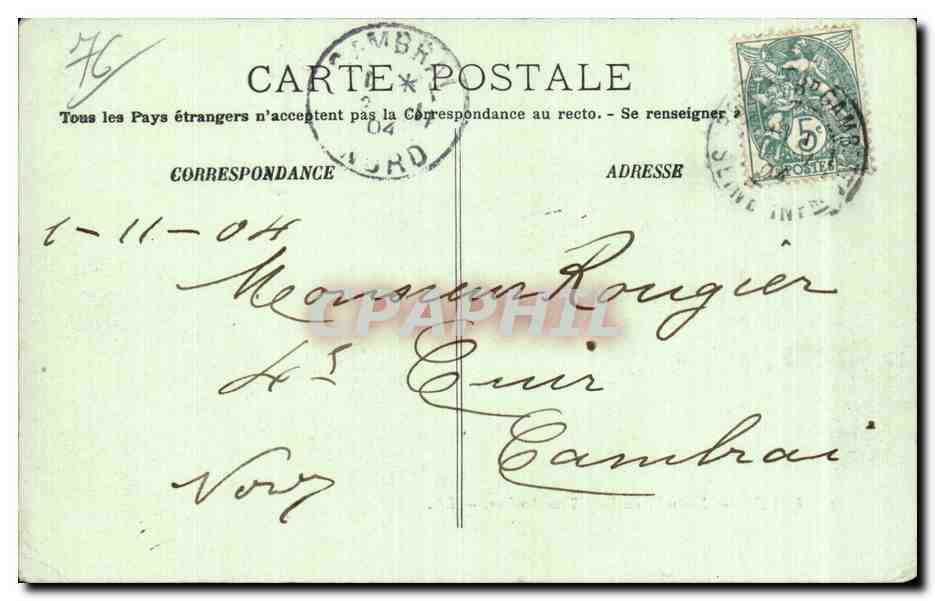 76
CAMBRAI
*
04
NORD
CARTE POSTALE
5c
POSTES
FÉCAMP
SEINE INFRE
Tous les Pays étrangers n'acceptent pas la Correspondance au recto. - Se renseigner
CORRESPONDANCE
ADRESSE
1-11-04
Monsieur Rougier
CPAPHIL
4s Cuir
Cambrai
Nord